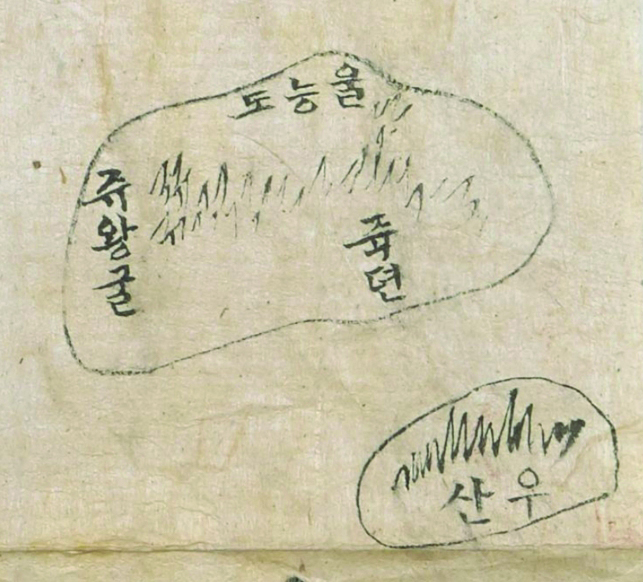 울능도
쥭뎐
쥬왕굴
우산